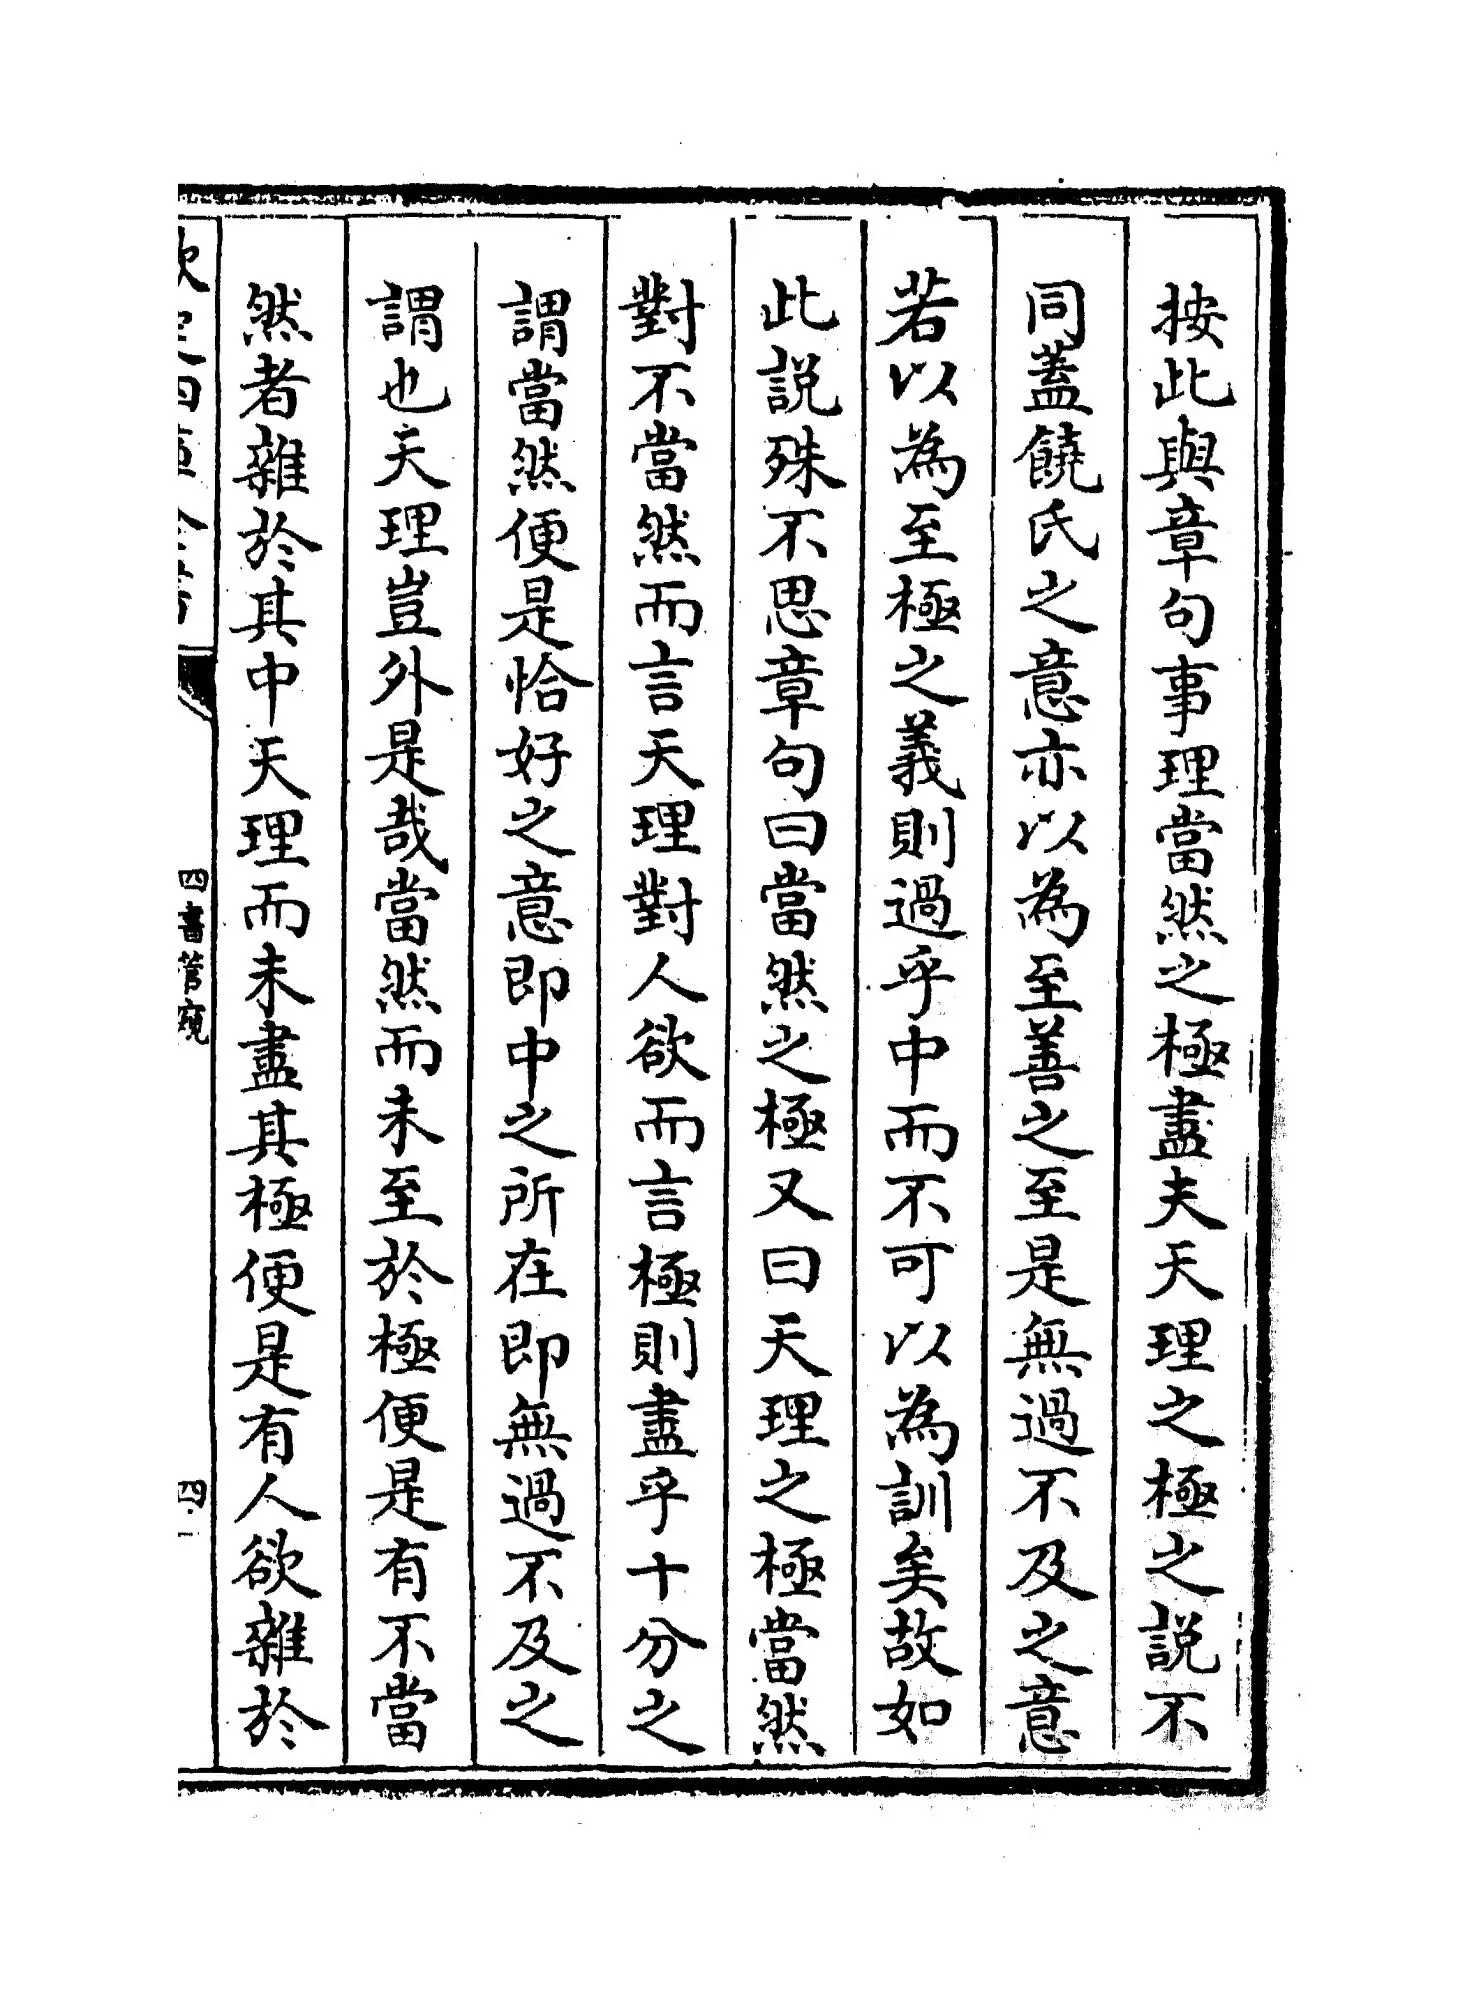 按此與章句事理當然之極盡夫天理之極之説不
同蓋饒氏之意亦以為至善之至是無過不及之意
若以為至極之義則過乎中而不可以為訓矣故如
此説殊不思章句曰當然之極又曰天理之極當然
對不當然而言天理對人欲而言極則盡乎十分之
謂當然便是恰好之意即中之所在即無過不及之
謂也天理豈外是哉當然而未至於極便是有不當
然者雜於其中天理而未盡其極便是有人欲雜於
欽定四庫全書
四書管窺
四